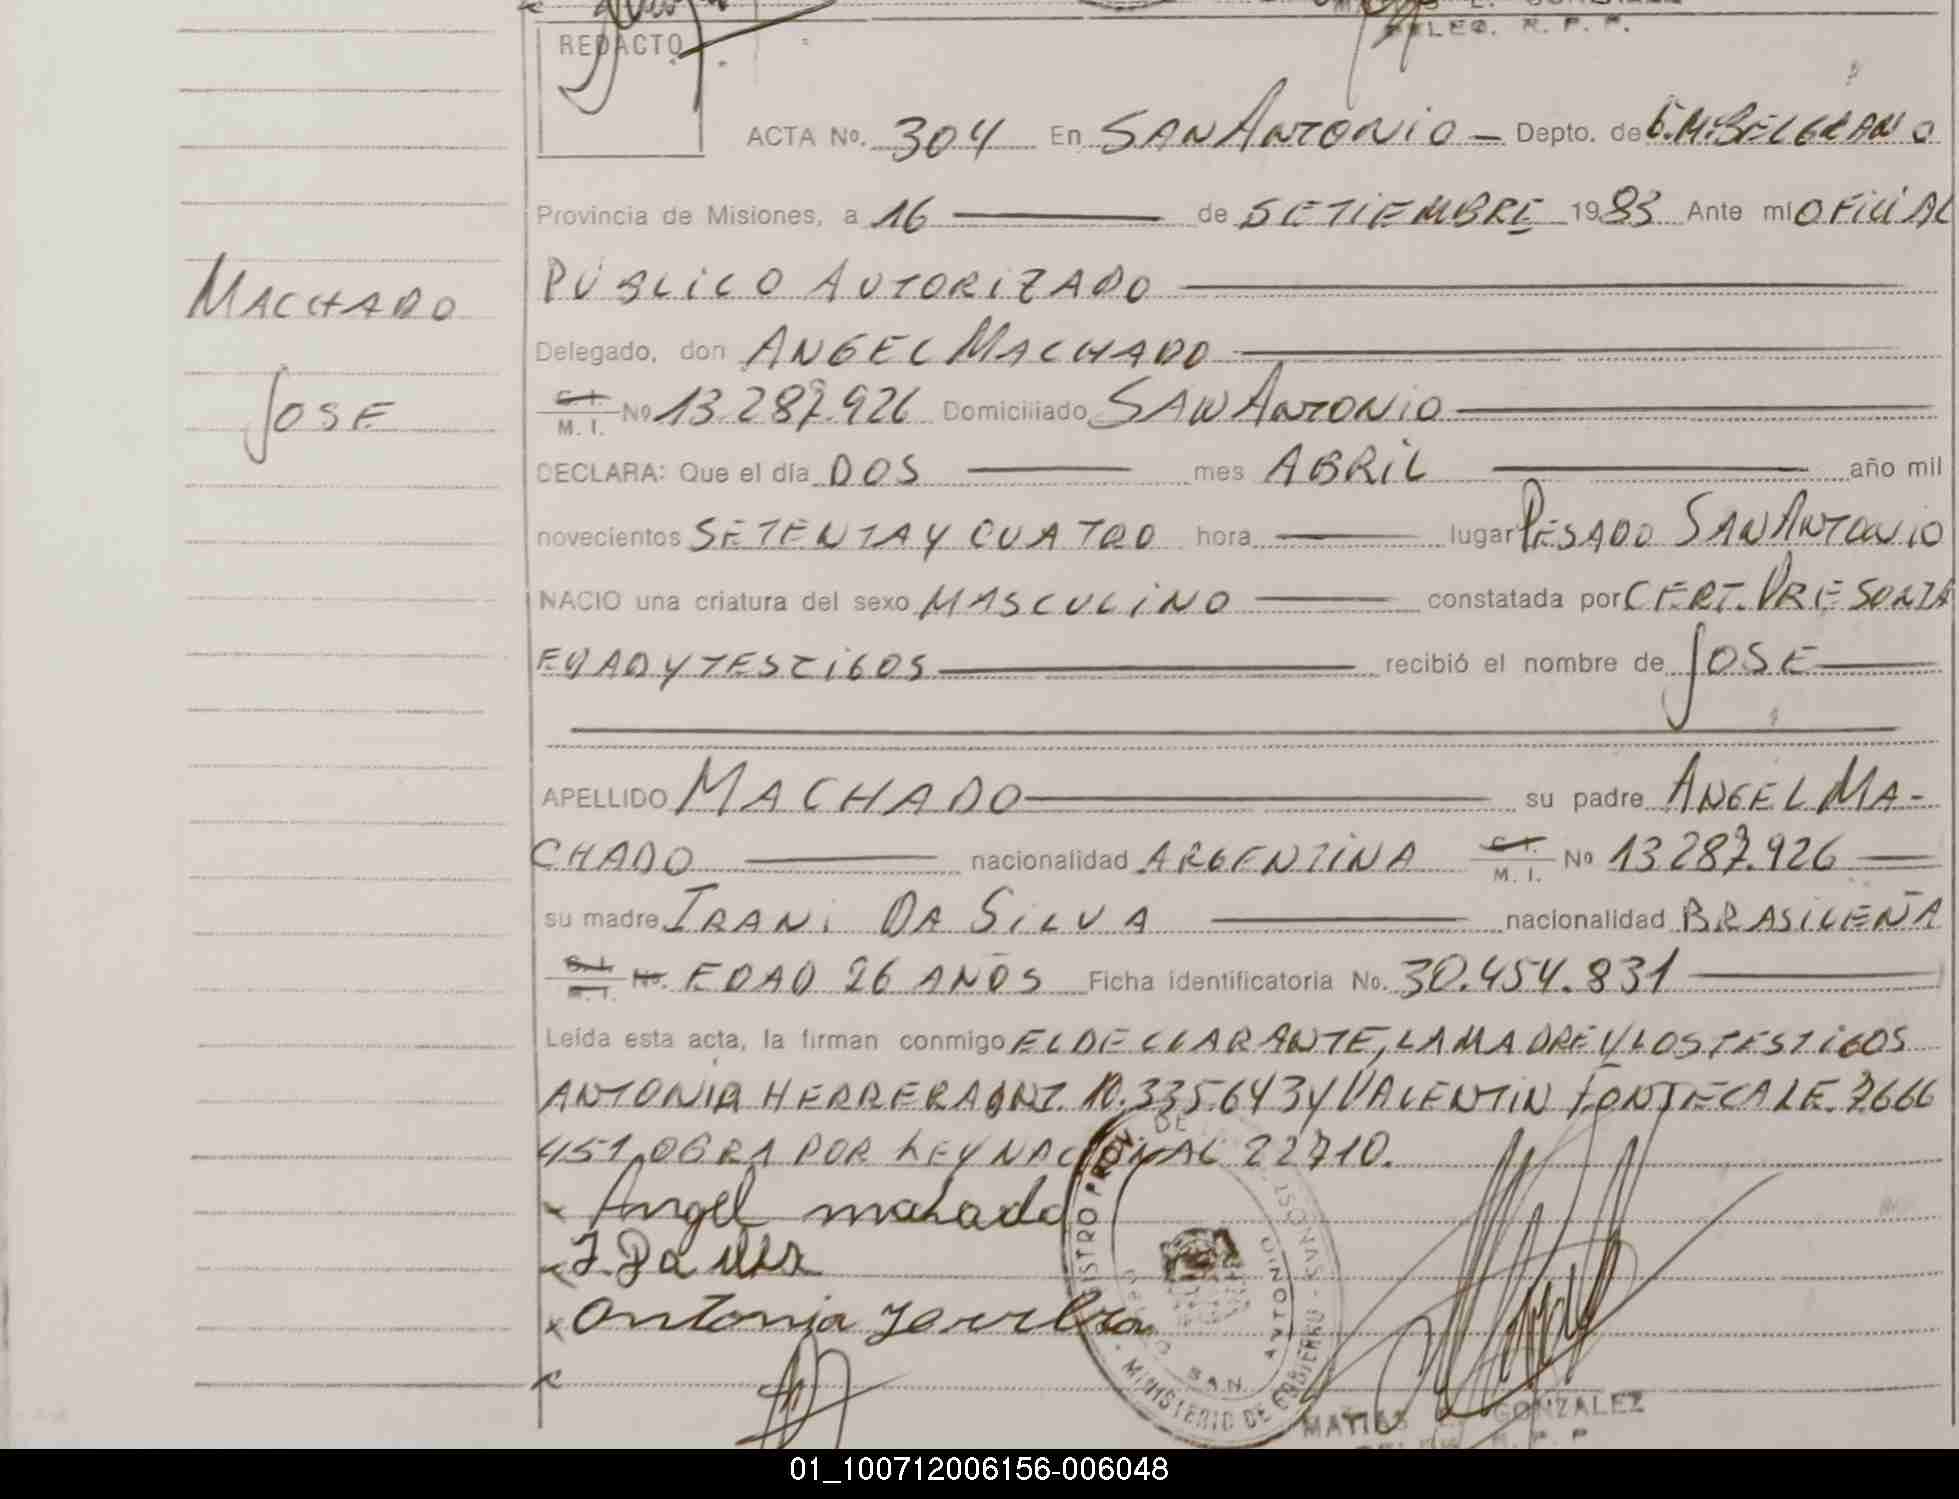 REDACTO
DELEG. R. P. P.
ACTA No. 304 En SAN ANTONIO — Depto. de G.M.BELGRANO
Provincia de Misiones, a 16 — de SETIEMBRE 1983 Ante mí OFICIAL
PÚBLICO AUTORIZADO
MACHADO
Delegado, don ANGEL MACHADO
JOSE
C. I. M. I. No 13.287.926 Domiciliado SAN ANTONIO
DECLARA: Que el día DOS mes ABRIL año mil
novecientos SETENTA Y CUATRO hora — lugar PESADO SAN ANTONIO
NACIO una criatura del sexo MASCULINO constatada por CERT. PRESUNTA
EDAD Y TESTIGOS recibió el nombre de JOSE
APELLIDO MACHADO su padre ANGEL MA-
CHADO nacionalidad ARGENTINA C. I. M. I. No 13.287.926
su madre IRANI DA SILVA nacionalidad BRASILEÑA
C. I. M. I. No. EDAD 26 AÑOS Ficha identificatoria No. 30.454.831
Leída esta acta, la firman conmigo EL DECLARANTE, LA MADRE Y LOS TESTIGOS
ANTONIA HERRERA DNI. 10.335.643 Y VALENTIN FONTECA LE. 7.666
451. OBRA POR LEY NACIONAL 22710.
x Angel machado
x Antonia
REGISTRO PROV. DE LAS PERSONAS - MINISTERIO DE GOBIERNO
SAN ANTONIO
MATIAS GONZALEZ
01_100712006156-006048